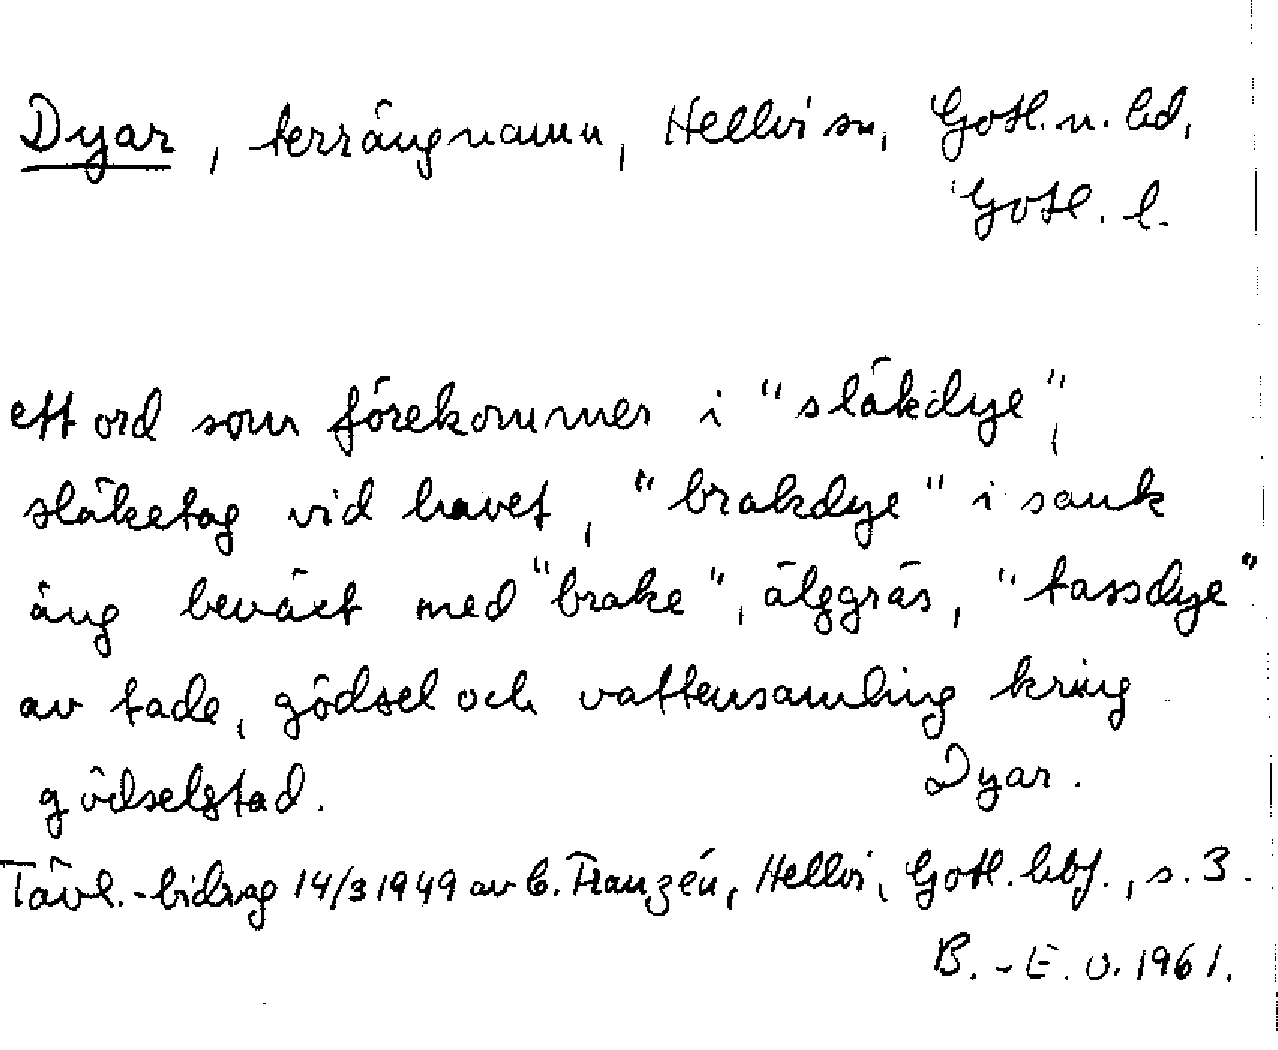 Dyar, terrängnamn, Hellvi sn, Gotl. n. hd,
Gotl. l.
ett ord som förekommer i "släkdye",
släketag vid havet, "brakdye" i sank
äng beväxt med "brake", älggräs, "tassdye"
av tade, gödsel och vattensamling kring
gödselstad. Dyar.
Tävl.-bidrag 14/3 1949 av C. Franzén, Hellvi, Gotl. hbf., s. 3.
B.-E. O. 1961.